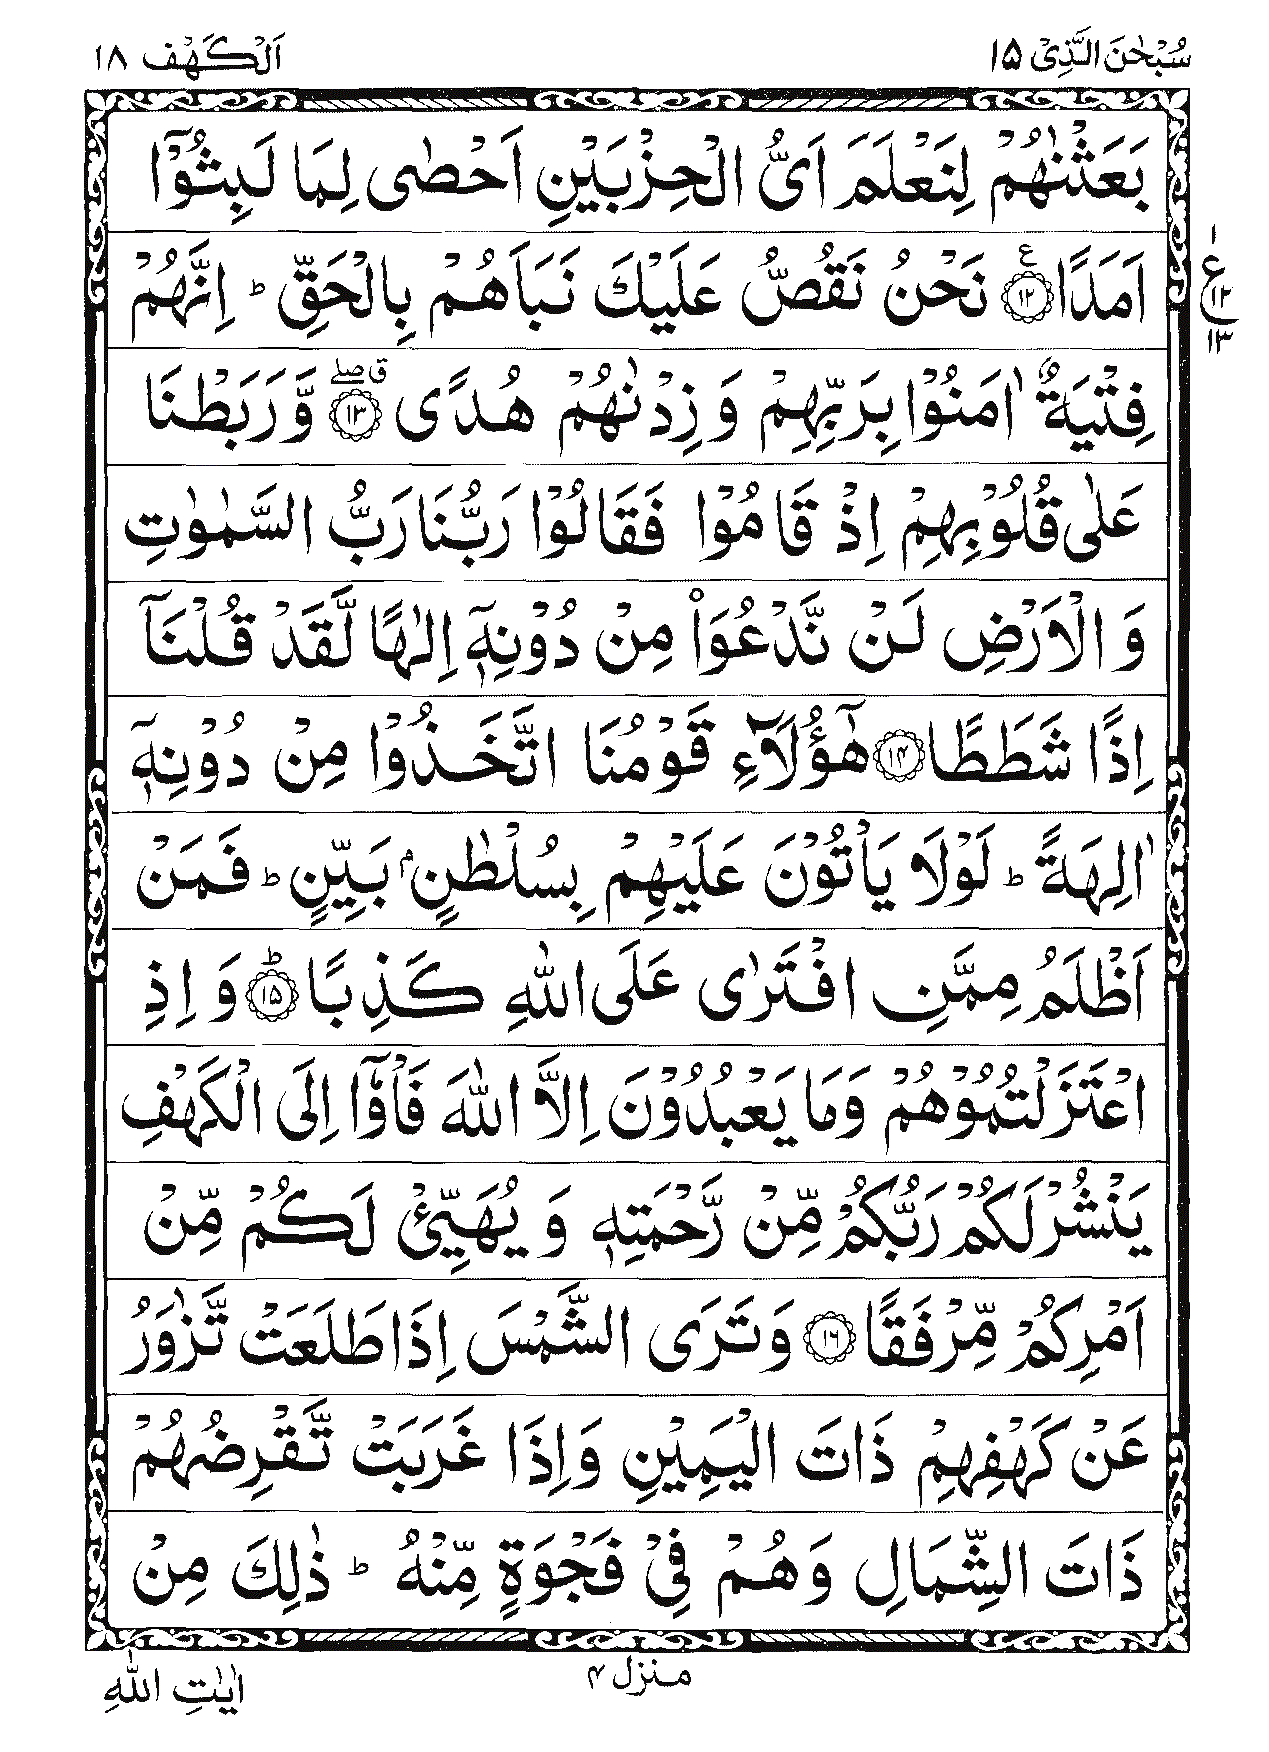 سُبْحٰنَ الَّذِیْۤ ۱۵
اَلْكَهْف ۱۸
بَعَثْنٰهُمْ لِنَعْلَمَ اَیُّ الْحِزْبَیْنِ اَحْصٰی لِمَا لَبِثُوْۤا
اَمَدًا ۱۲ ع نَحْنُ نَقُصُّ عَلَیْكَ نَبَاَهُمْ بِالْحَقِّ ؕ اِنَّهُمْ
۱
ع ۱۲
۱۳
فِتْیَةٌ اٰمَنُوْا بِرَبِّهِمْ وَ زِدْنٰهُمْ هُدًی ۱۳ ق صلے وَّ رَبَطْنَا
عَلٰی قُلُوْبِهِمْ اِذْ قَامُوْا فَقَالُوْا رَبُّنَا رَبُّ السَّمٰوٰتِ
وَ الْاَرْضِ لَنْ نَّدْعُوَاۡ مِنْ دُوْنِهٖۤ اِلٰهًا لَّقَدْ قُلْنَاۤ
اِذًا شَطَطًا ۱۴ هٰۤؤُلَآءِ قَوْمُنَا اتَّخَذُوْا مِنْ دُوْنِهٖۤ
اٰلِهَةً ؕ لَوْلَا یَاْتُوْنَ عَلَیْهِمْ بِسُلْطٰنٍۭ بَیِّنٍ ؕ فَمَنْ
اَظْلَمُ مِمَّنِ افْتَرٰی عَلَی اللّٰهِ كَذِبًا ؕ ۱۵ وَ اِذِ
اعْتَزَلْتُمُوْهُمْ وَمَا یَعْبُدُوْنَ اِلَّا اللّٰهَ فَاْوٗۤا اِلَی الْكَهْفِ
یَنْشُرْ لَكُمْ رَبُّكُمْ مِّنْ رَّحْمَتِهٖ وَ یُهَیِّئْ لَكُمْ مِّنْ
اَمْرِكُمْ مِّرْفَقًا ۱۶ وَتَرَی الشَّمْسَ اِذَا طَلَعَتْ تَّزٰوَرُ
عَنْ كَهْفِهِمْ ذَاتَ الْیَمِیْنِ وَاِذَا غَرَبَتْ تَّقْرِضُهُمْ
ذَاتَ الشِّمَالِ وَهُمْ فِیْ فَجْوَةٍ مِّنْهُ ؕ ذٰلِكَ مِنْ
منزل ۴
اٰیٰتِ اللّٰهِ